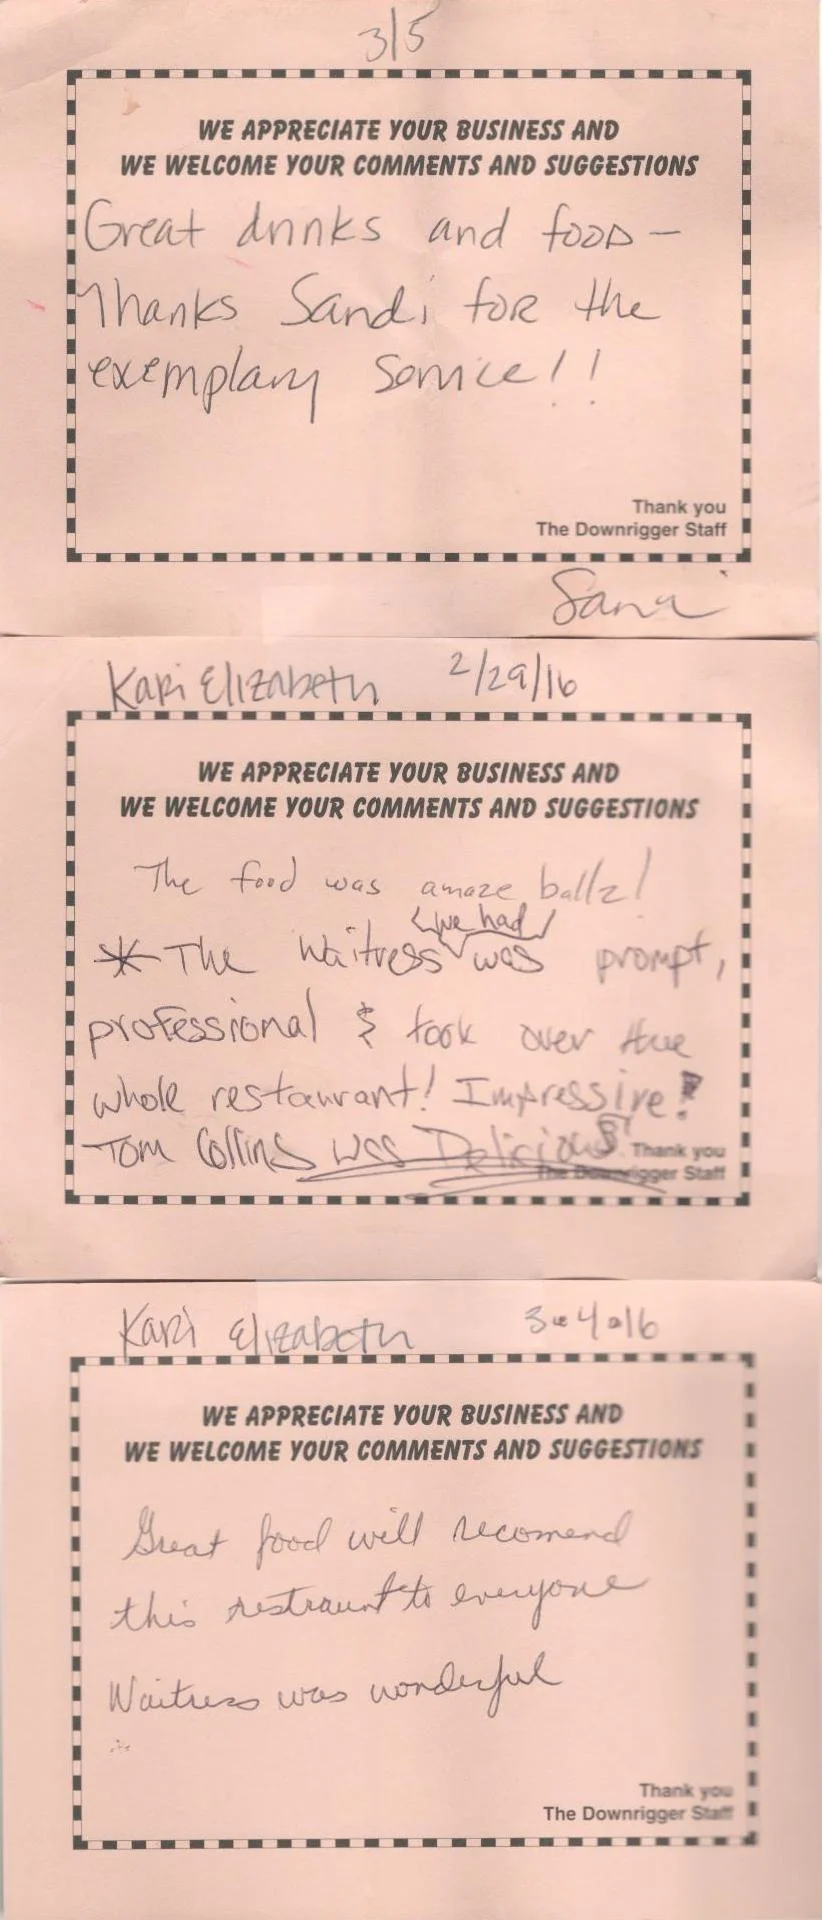 3/5
WE APPRECIATE YOUR BUSINESS AND
WE WELCOME YOUR COMMENTS AND SUGGESTIONS
Great drinks and food -
Thanks Sandi for the
exemplary service!!
Thank you
The Downrigger Staff
Sandi
Kari Elizabeth 2/29/16
WE APPRECIATE YOUR BUSINESS AND
WE WELCOME YOUR COMMENTS AND SUGGESTIONS
The food was amaze ballz!
<we had>
* The Waitress was prompt,
professional & took over the
whole restaurant! Impressive!
Tom Collins was Delicious!
Thank you
The Downrigger Staff
Kari Elizabeth 3-4-16
WE APPRECIATE YOUR BUSINESS AND
WE WELCOME YOUR COMMENTS AND SUGGESTIONS
Great food will recomend
this restraunt to everyone
Waitress was wonderful
Thank you
The Downrigger Staff